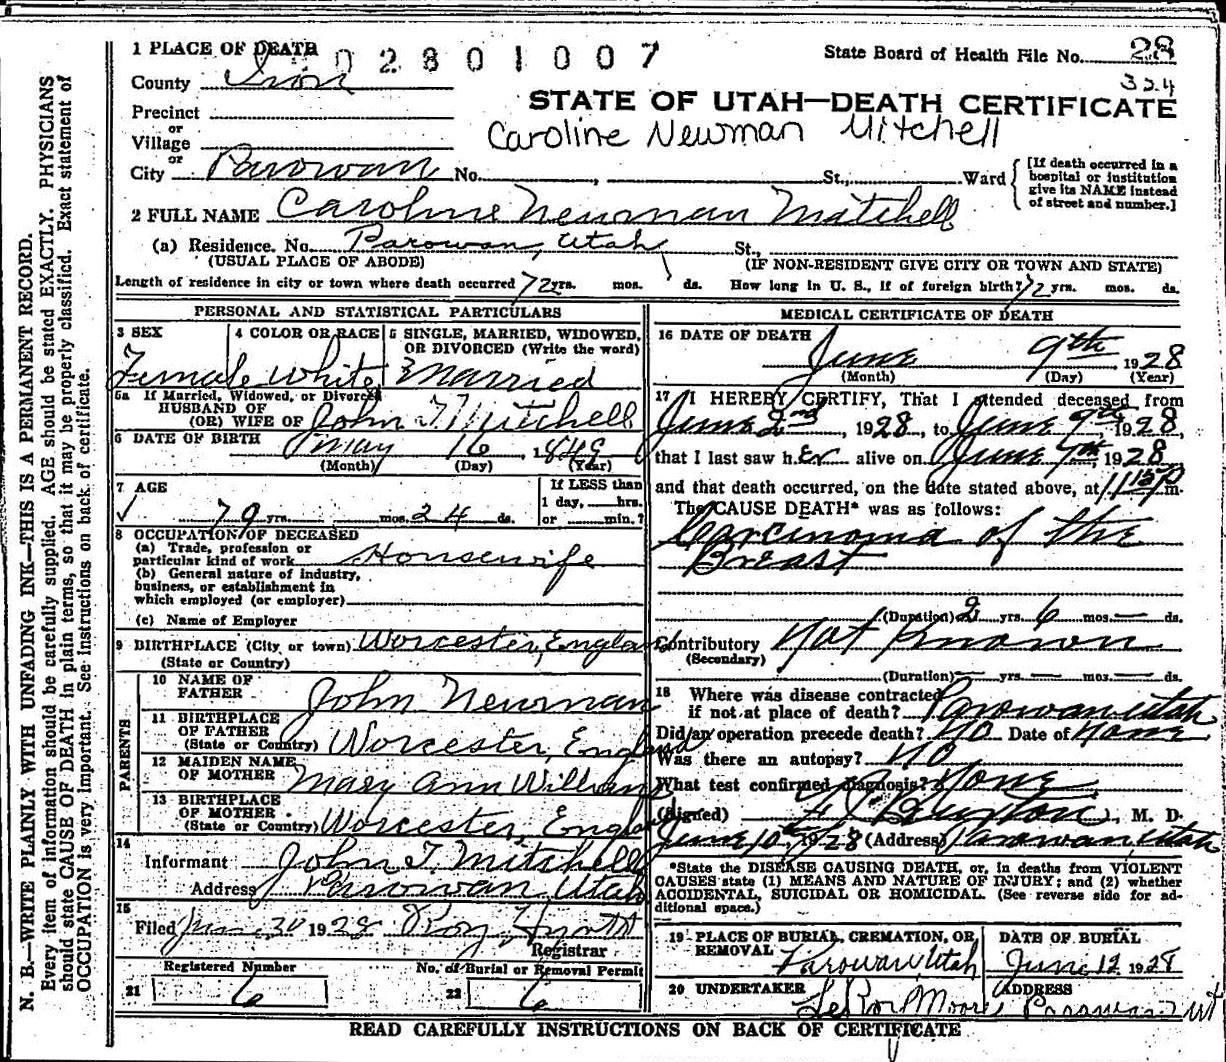 1 PLACE OF DEATH 02801007 State Board of Health File No. 28
County Iron 334
STATE OF UTAH—DEATH CERTIFICATE
Precinct
or
Village
Caroline Newman Mitchell
or
City Parowan No. , St., Ward
[If death occurred in a hospital or institution give its NAME instead of street and number.]
2 FULL NAME Caroline Newman Mitchell
(a) Residence. No. Parowan, Utah St.,
(USUAL PLACE OF ABODE) (IF NON-RESIDENT GIVE CITY OR TOWN AND STATE)
Length of residence in city or town where death occurred 72 yrs. mos. ds. How long in U. S., if of foreign birth? 72 yrs. mos. ds.
PERSONAL AND STATISTICAL PARTICULARS
3 SEX 4 COLOR OR RACE 5 SINGLE, MARRIED, WIDOWED,
OR DIVORCED (Write the word)
Female White Married
5a If Married, Widowed, or Divorced
HUSBAND OF
(OR) WIFE OF John T Mitchell
6 DATE OF BIRTH May 16, 1849
(Month) (Day) (Year)
7 AGE If LESS than
1 day, hrs.
79 yrs. mos. 24 ds. or min.?
8 OCCUPATION OF DECEASED
(a) Trade, profession or
particular kind of work Housewife
(b) General nature of industry,
business, or establishment in
which employed (or employer)
(c) Name of Employer
9 BIRTHPLACE (City, or town) Worcester, England
(State or Country)
PARENTS
10 NAME OF
FATHER John Newman
11 BIRTHPLACE
OF FATHER
(State or Country) Worcester, England
12 MAIDEN NAME
OF MOTHER Mary Ann Williams
13 BIRTHPLACE
OF MOTHER
(State or Country) Worcester, England
14
Informant John T. Mitchell
Address Parowan, Utah
15
Filed June 30 1928 Roy
Registrar
Registered Number No. of Burial or Removal Permit
21 6 22 6
MEDICAL CERTIFICATE OF DEATH
16 DATE OF DEATH
June 9th 1928
(Month) (Day) (Year)
17 I HEREBY CERTIFY, That I attended deceased from
June 2nd, 1928, to June 9th 1928,
that I last saw her alive on June 9th, 1928
and that death occurred, on the date stated above, at 11:15 P m.
The CAUSE DEATH* was as follows:
Carcinoma of the
Breast
(Duration) 2 yrs. 6 mos. — ds.
Contributory Not Known
(Secondary)
(Duration) — yrs. — mos. — ds.
18 Where was disease contracted
if not at place of death? Parowan Utah
Did an operation precede death? No Date of None
Was there an autopsy? No
What test confirmed diagnosis? None
(Signed) Burton, M. D.
June 10, 1928 (Address) Parowan, Utah
*State the DISEASE CAUSING DEATH, or, in deaths from VIOLENT
CAUSES state (1) MEANS AND NATURE OF INJURY; and (2) whether
ACCIDENTAL, SUICIDAL OR HOMICIDAL. (See reverse side for ad-
ditional space.)
19 PLACE OF BURIAL, CREMATION, OR
REMOVAL Parowan, Utah
DATE OF BURIAL
June 12 1928
20 UNDERTAKER ADDRESS
LeRoy Moore Parowan Ut
READ CAREFULLY INSTRUCTIONS ON BACK OF CERTIFICATE
N. B.—WRITE PLAINLY WITH UNFADING INK—THIS IS A PERMANENT RECORD.
Every item of information should be carefully supplied. AGE should be stated EXACTLY. PHYSICIANS
should state CAUSE OF DEATH in plain terms, so that it may be properly classified. Exact statement of
OCCUPATION is very important. See instructions on back of certificate.